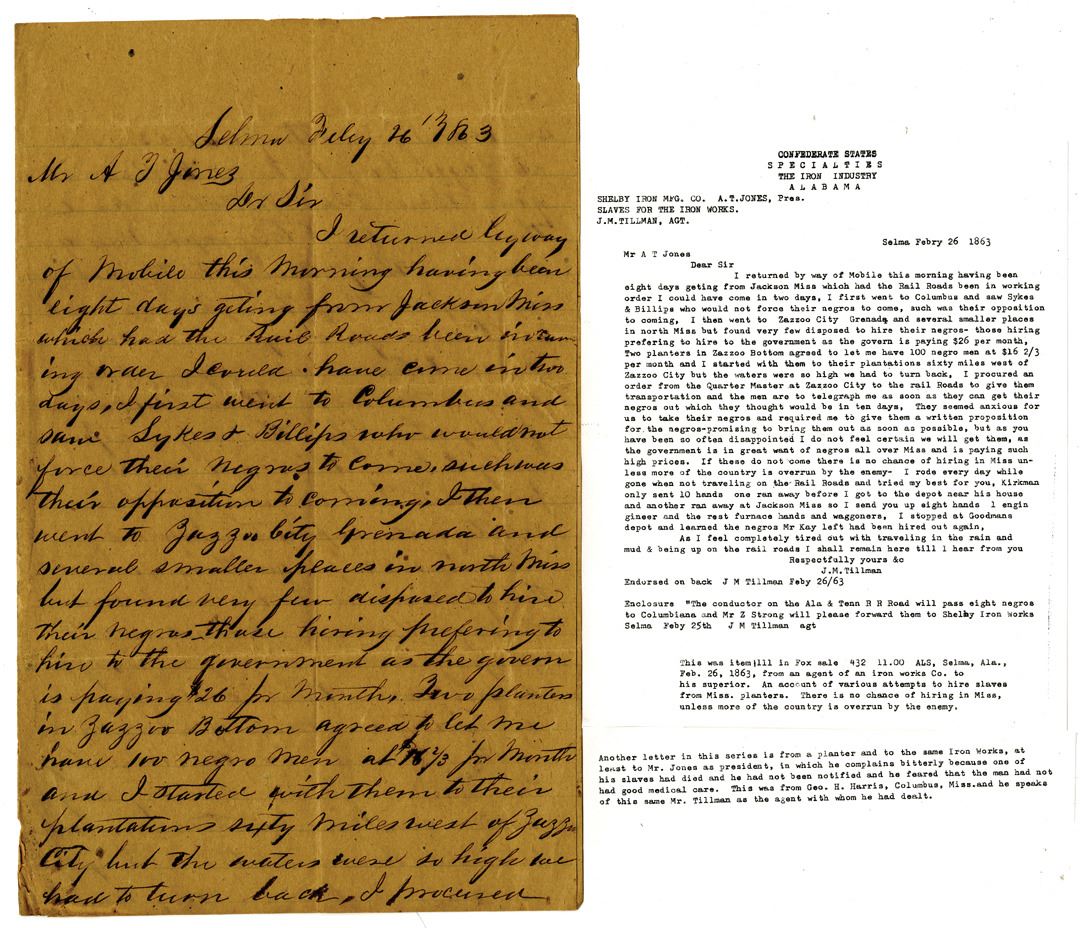 Selma Feby 26th 1863
Mr A T Jones
Dr Sir
I returned by way
of Mobile this Morning having been
eight days geting from Jackson Miss
which had the Rail Roads been in
ing order I could have come in two
days, I first went to Columbus and
saw Sykes & Billips who would not
force their negros to come, such was
their opposition to coming, I then
went to Zazzoo City Grenada and
several smaller places in north Miss
but found very few disposed to hire
their negros those hiring prefering to
hire to the government as the govern
is paying $26 pr Month, Two planters
in Zazzoo Bottom agreed to let me
have 100 negro men at $16 2/3 pr Month
and I started with them to their
plantations sixty miles west of Zazzo
City but the waters were so high we
had to turn back, I procured
CONFEDERATE STATES
SPECIALTIES
THE IRON INDUSTRY
ALABAMA
SHELBY IRON MFG. CO. A.T.JONES, Pres.
SLAVES FOR THE IRON WORKS.
J.M.TILLMAN, AGT.
Selma Febry 26 1863
Mr A T Jones
Dear Sir
I returned by way of Mobile this morning having been
eight days geting from Jackson Miss which had the Rail Roads been in working
order I could have come in two days, I first went to Columbus and saw Sykes
& Billips who would not force their negros to come, such was their opposition
to coming, I then went to Zazzoo City Grenada and several smaller places
in north Miss but found very few disposed to hire their negros- those hiring
prefering to hire to the government as the govern is paying $26 per month,
Two planters in Zazzoo Bottom agreed to let me have 100 negro men at $16 2/3
per month and I started with them to their plantations sixty miles west of
Zazzoo City but the waters were so high we had to turn back, I procured an
order from the Quarter Master at Zazzoo City to the rail Roads to give them
transportation and the men are to telegraph me as soon as they can get their
negros out which they thought would be in ten days, They seemed anxious for
us to take their negros and required me to give them a written proposition
for the negros-promising to bring them out as soon as possible, but as you
have been so often disappointed I do not feel certain we will get them, as
the government is in great want of negros all over Miss and is paying such
high prices. If these do not come there is no chance of hiring in Miss un-
less more of the country is overrun by the enemy- I rode every day while
gone when not traveling on the Rail Roads and tried my best for you, Kirkman
only sent 10 hands one ran away before I got to the depot near his house
and another ran away at Jackson Miss so I send you up eight hands 1 engin
gineer and the rest furnace hands and waggoners, I stopped at Goodmans
depot and learned the negros Mr Kay left had been hired out again,
As I feel completely tired out with traveling in the rain and
mud & being up on the rail roads I shall remain here till I hear from you
Respectfully yours &c
J.M.Tillman
Endorsed on back J M Tillman Feby 26/63
Enclosure "The conductor on the Ala & Tenn R R Road will pass eight negros
to Columbiana and Mr Z Strong will please forward them to Shelby Iron Works
Selma Feby 25th J M Tillman agt
This was item 111 in Fox sale 432 11.00 ALS, Selma, Ala.,
Feb. 26, 1863, from an agent of an iron works Co. to
his superior. An account of various attempts to hire slaves
from Miss. planters. There is no chance of hiring in Miss,
unless more of the country is overrun by the enemy.
Another letter in this series is from a planter and to the same Iron Works, at
least to Mr. Jones as president, in which he complains bitterly because one of
his slaves had died and he had not been notified and he feared that the man had not
had good medical care. This was from Geo. H. Harris, Columbus, Miss.and he speaks
of this same Mr. Tillman as the agent with whom he had dealt.